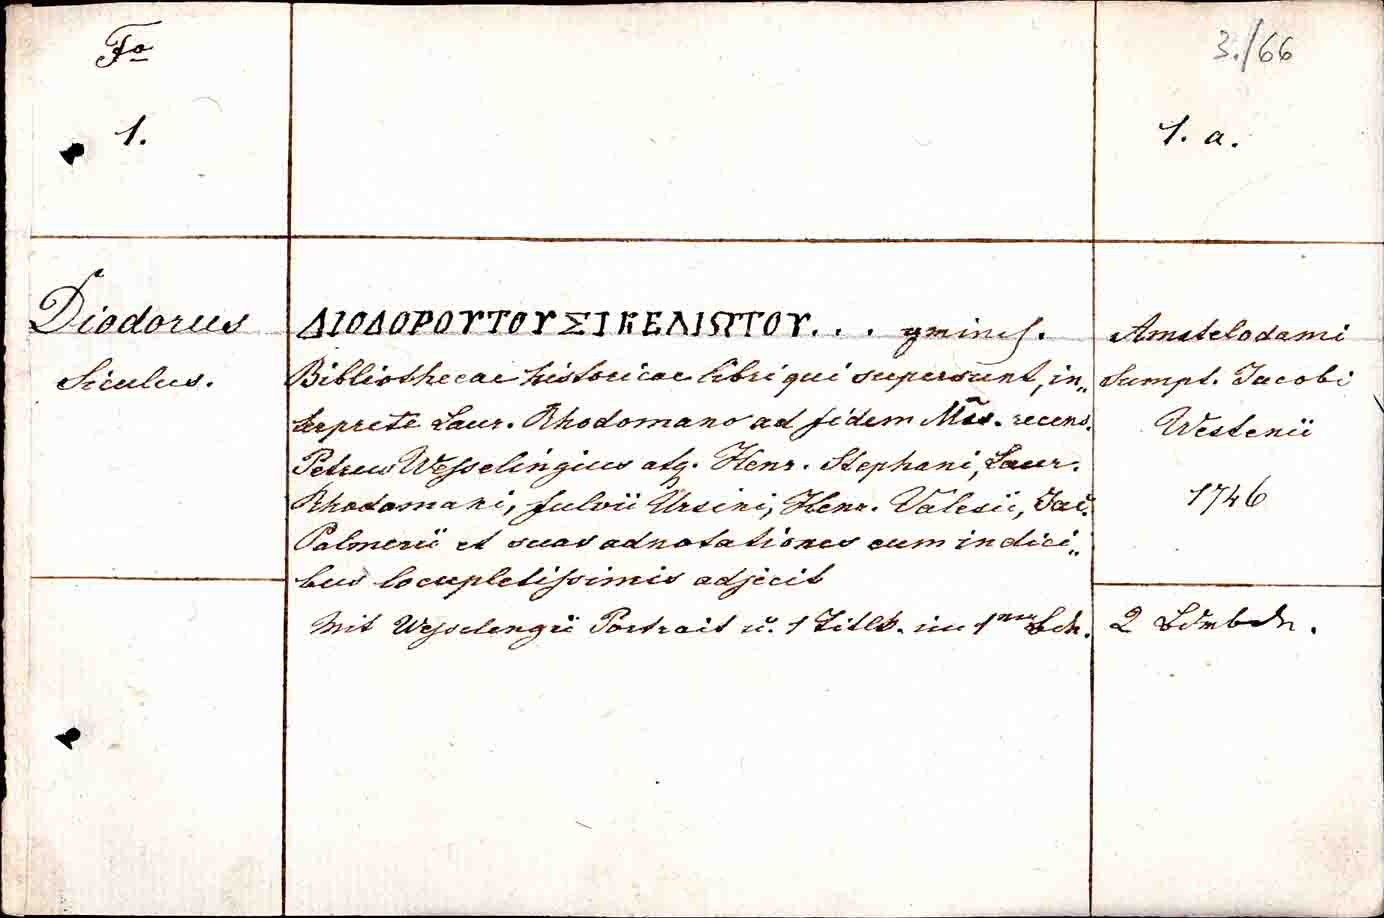 Fo
3./66
1.
1. a.
Diodorus
Siculus.
ΔΙΟΔΟΡΟΥ ΤΟΥ ΣΙΚΕΛΙΩΤΟΥ. . . griech.
Bibliothecae historicae libri qui supersunt, in„
terprete Laur. Rhodomano ad fidem Mss. recens.
Petrus Wesselingius atq. Henr. Stephani, Laur.
Rhodomani, fulvii Ursini, Henr. Valesii, Jac.
Palmerii et suas adnotationes cum indici„
bus locupletissimis adjecit
Mit Wesselengii Portrait u. 1 Titlk. im 1ten Bde.
Amstelodami
Sumpt. Jacobi
Westenii
1746
2 Ldrbde.